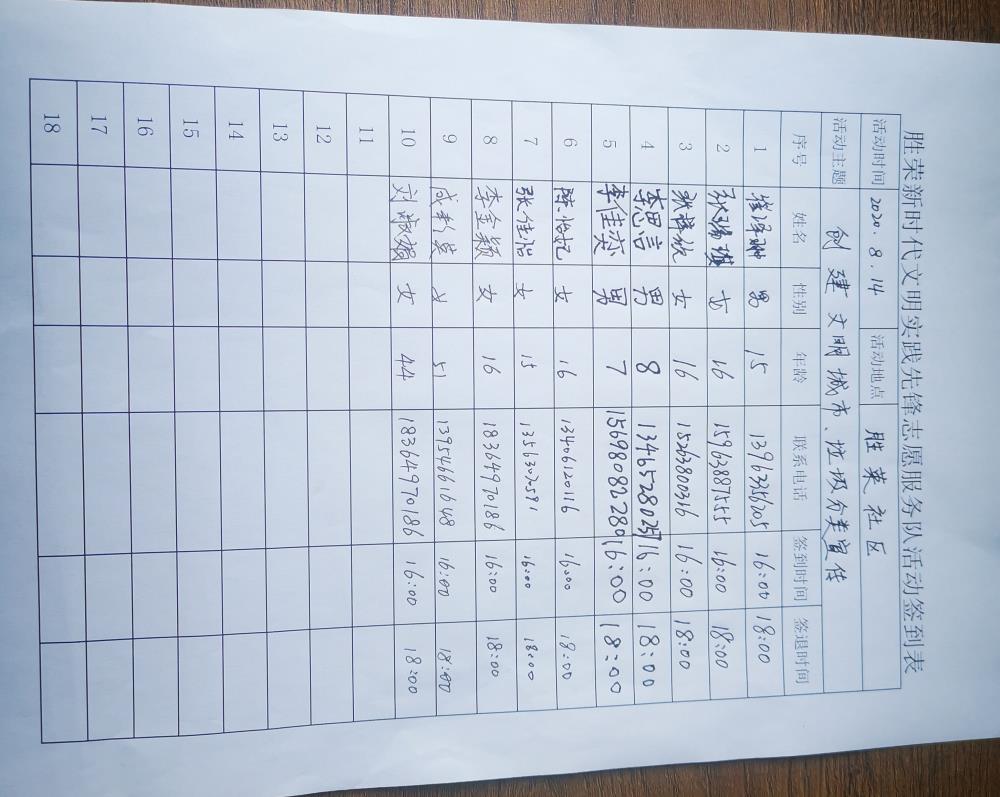 胜荣新时代文明实践先锋志愿服务队活动签到表
活动时间 2020.8.14 活动地点 胜荣社区
活动主题 创建文明城市、垃圾分类宣传
序号 姓名 性别 年龄 联系电话 签到时间 签退时间
1 男 15 13963356205 16:00 18:00
2 女 16 15963887555 16:00 18:00
3 女 16 15263800316 16:00 18:00
4 李思言 男 8 13465280257 16:00 18:00
5 李佳奕 男 7 15698082280 16:00 18:00
6 陈怡妃 女 16 13406120116 16:00 18:00
7 张佳怡 女 15 13563302591 16:00 18:00
8 李金颖 女 16 18364970186 16:00 18:00
9 女 51 13954661648 16:00 18:00
10 刘淑娟 女 44 18364970186 16:00 18:00
11
12
13
14
15
16
17
18